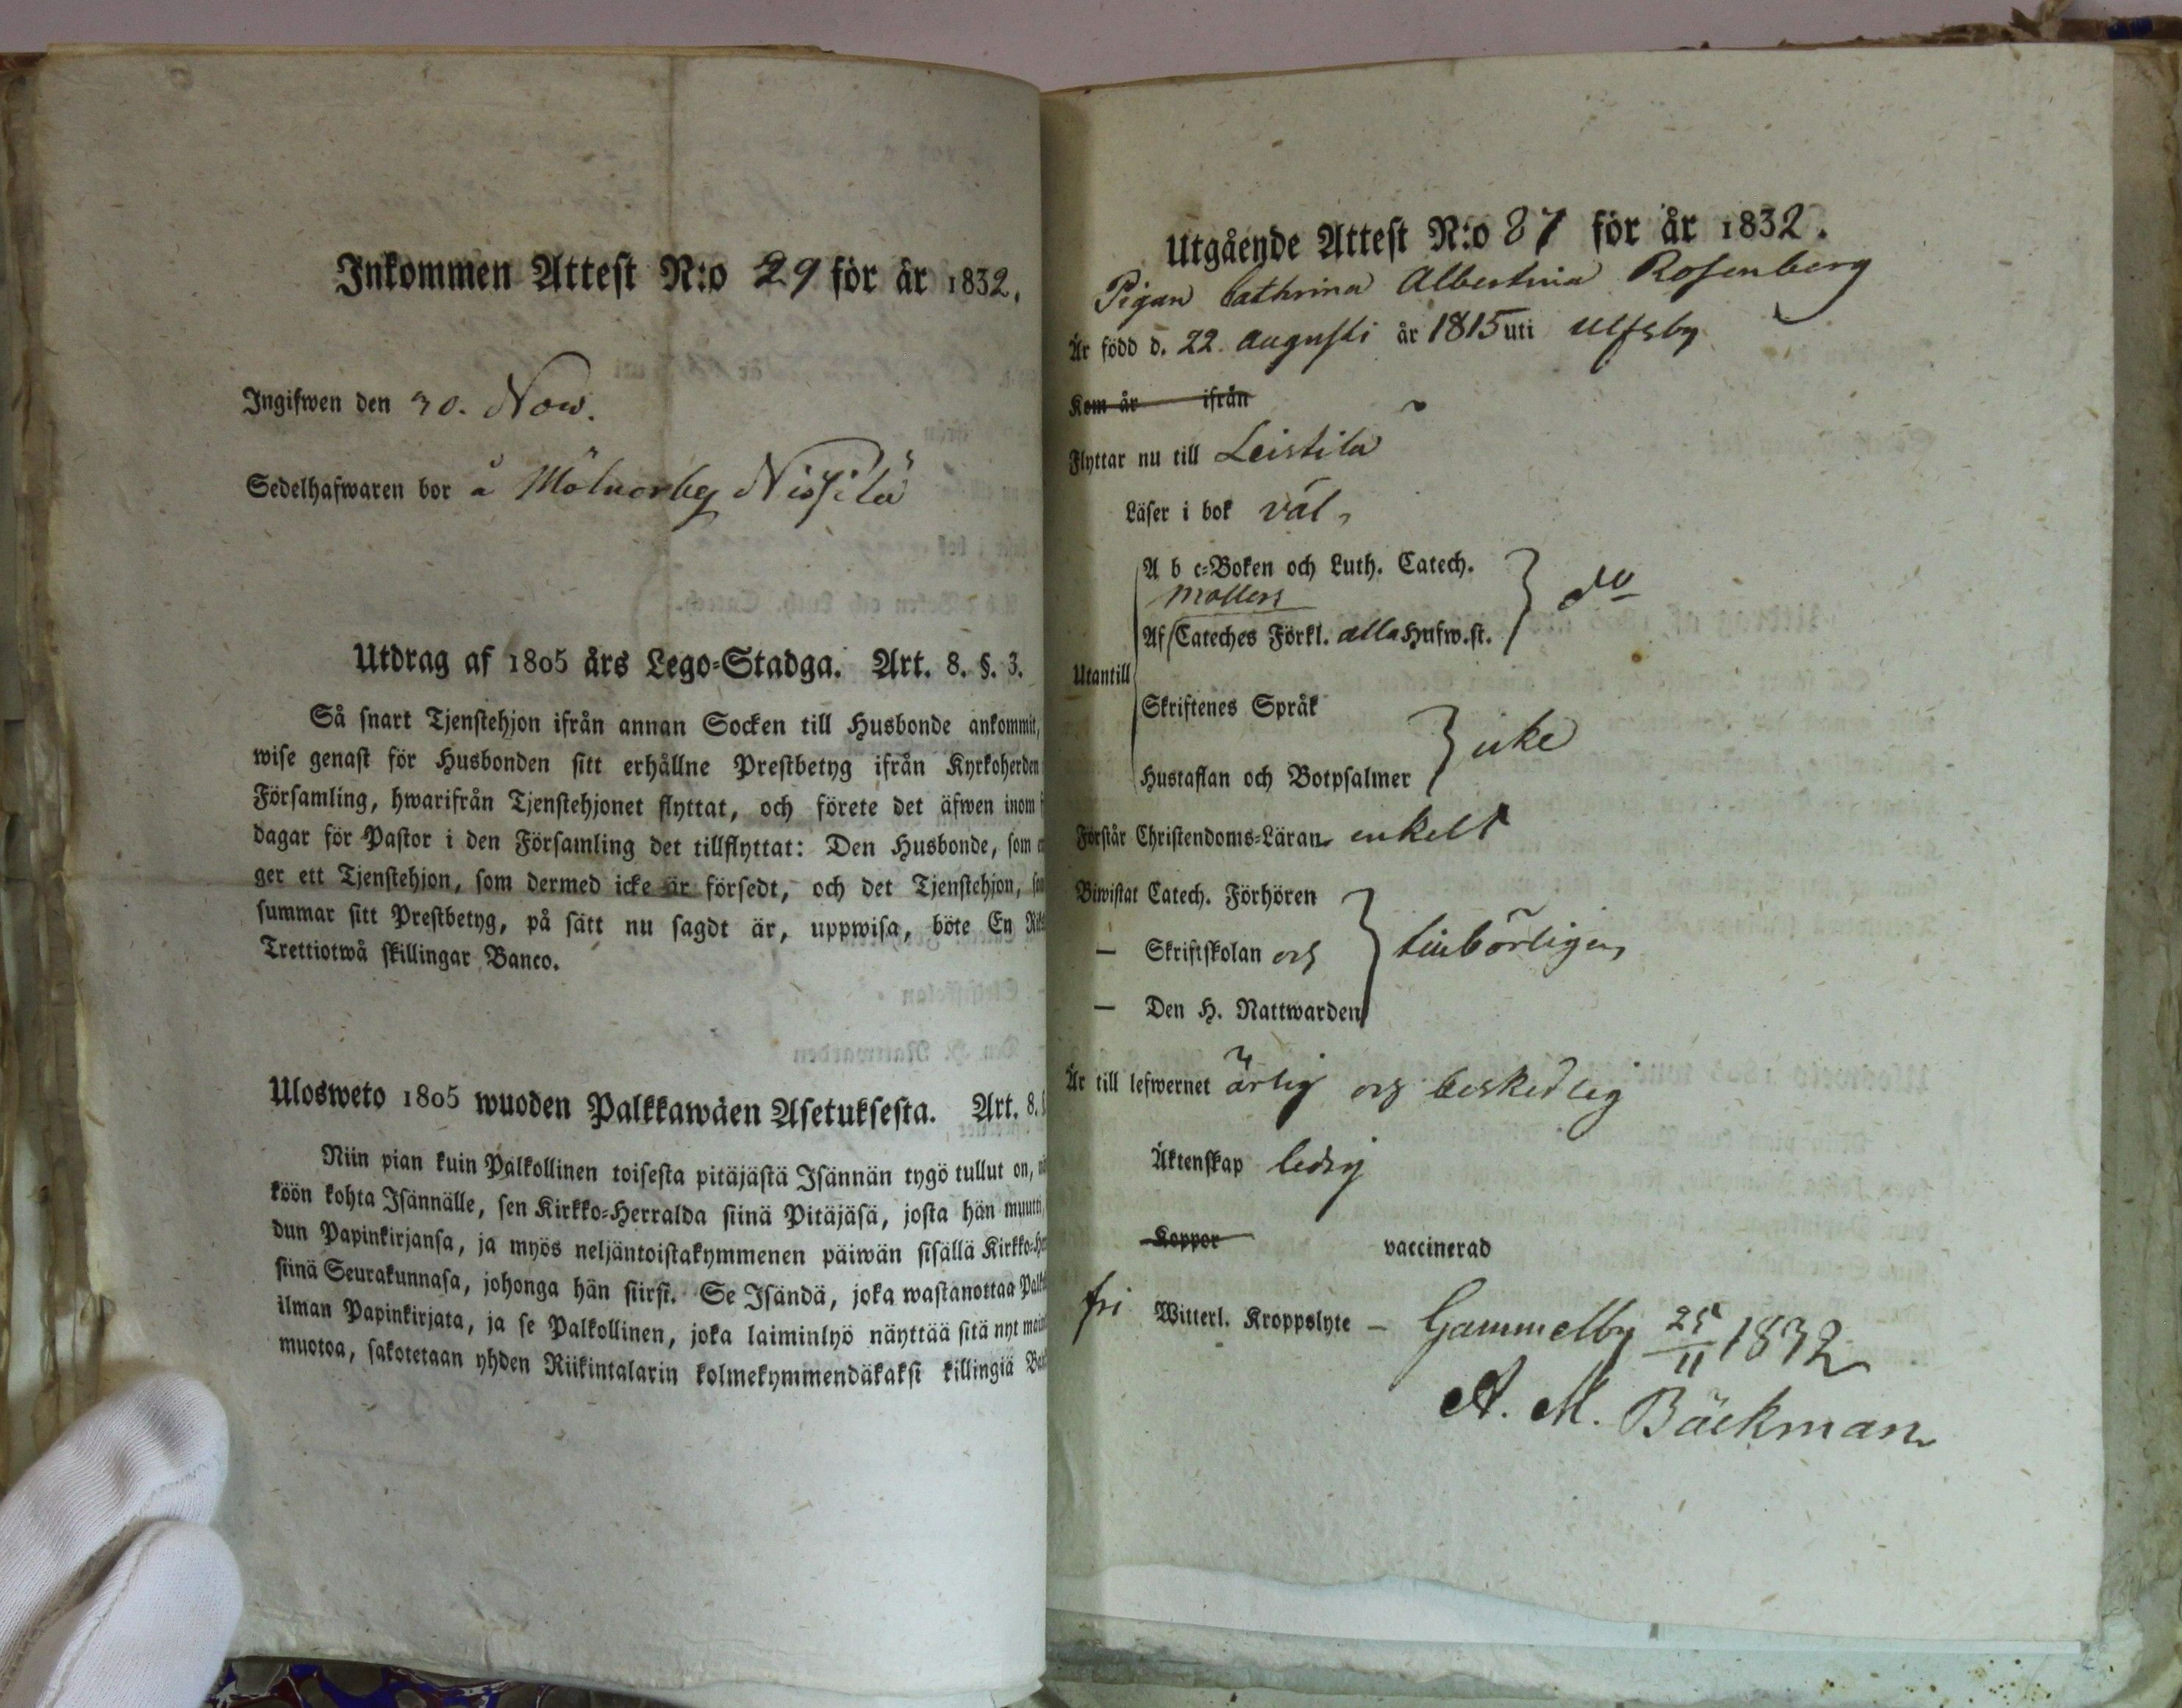 Inkommen Attest N:o 29 för år 1832.
Ingifwen den 30. Nov.
Sedelhafwaren bor å Mölnorby Nissilä
Utdrag af 1805 års Lego-Stadga. Art. 8. §. 3.
Så snart Tjenstehjon ifrån annan Socken till Husbonde ankommit,
wise genast för Husbonden sitt erhållne Prestbetyg ifrån Kyrkoherden
Församling, hwarifrån Tjenstehjonet flyttat, och förete det äfwen inom
dagar för Pastor i den Församling det tillflyttat: Den Husbonde, som
ger ett Tjenstehjon, som dermed icke är försedt, och det Tjenstehjon,
summar sitt Prestbetyg, på sätt nu sagdt är, uppwisa, böte En
Trettiotwå skillingar Banco.
Ulosweto 1805 wuoden Palkkawäen Asetuksesta. Art. 8.
Niin pian kuin Palkollinen toisesta pitäjästä Isännän tygö tullut on,
köön kohta Isännälle, sen Kirkko-Herralda siinä Pitäjäsä, josta hän muutti,
dun Papinkirjansa, ja myös neljäntoistakymmenen päiwän sisällä
siinä Seurakunnasa, johonga hän siirsi. Se Isändä, joka wastanottaa
ilman Papinkirjata, ja se Palkollinen, joka laiminlyö näyttää sitä nyt
muotoa, sakotetaan yhden Riikintalarin kolmekymmendäkaksi killingiä
Utgående Attest N:o 87 för år 1832.
Pigan Cathrina Albertina Rosenberg
Är född d. 22 augusti år 1815 uti Ulfsby
Kom år ifrån
Flyttar nu till Leistila
Läser i bok väl,
A b c-Boken och Luth. Catech.
Möllers
do
Af Cateches Förkl. alla Hufw.st.
Utantill
Skriftenes Språk
icke
Hustaflan och Botpsalmer
Förstår Christendoms-Läran enkelt
Biwistat Catech. Förhören
— Skriftskolan och
tilbörligen
— Den H. Nattwarden
Är till lefwernet ärlig och beskedlig
Äktenskap ledig
Koppor vaccinerad
fri Witterl. Kroppslyte – Gammelby 25/11 1832
A. M. Bäckman